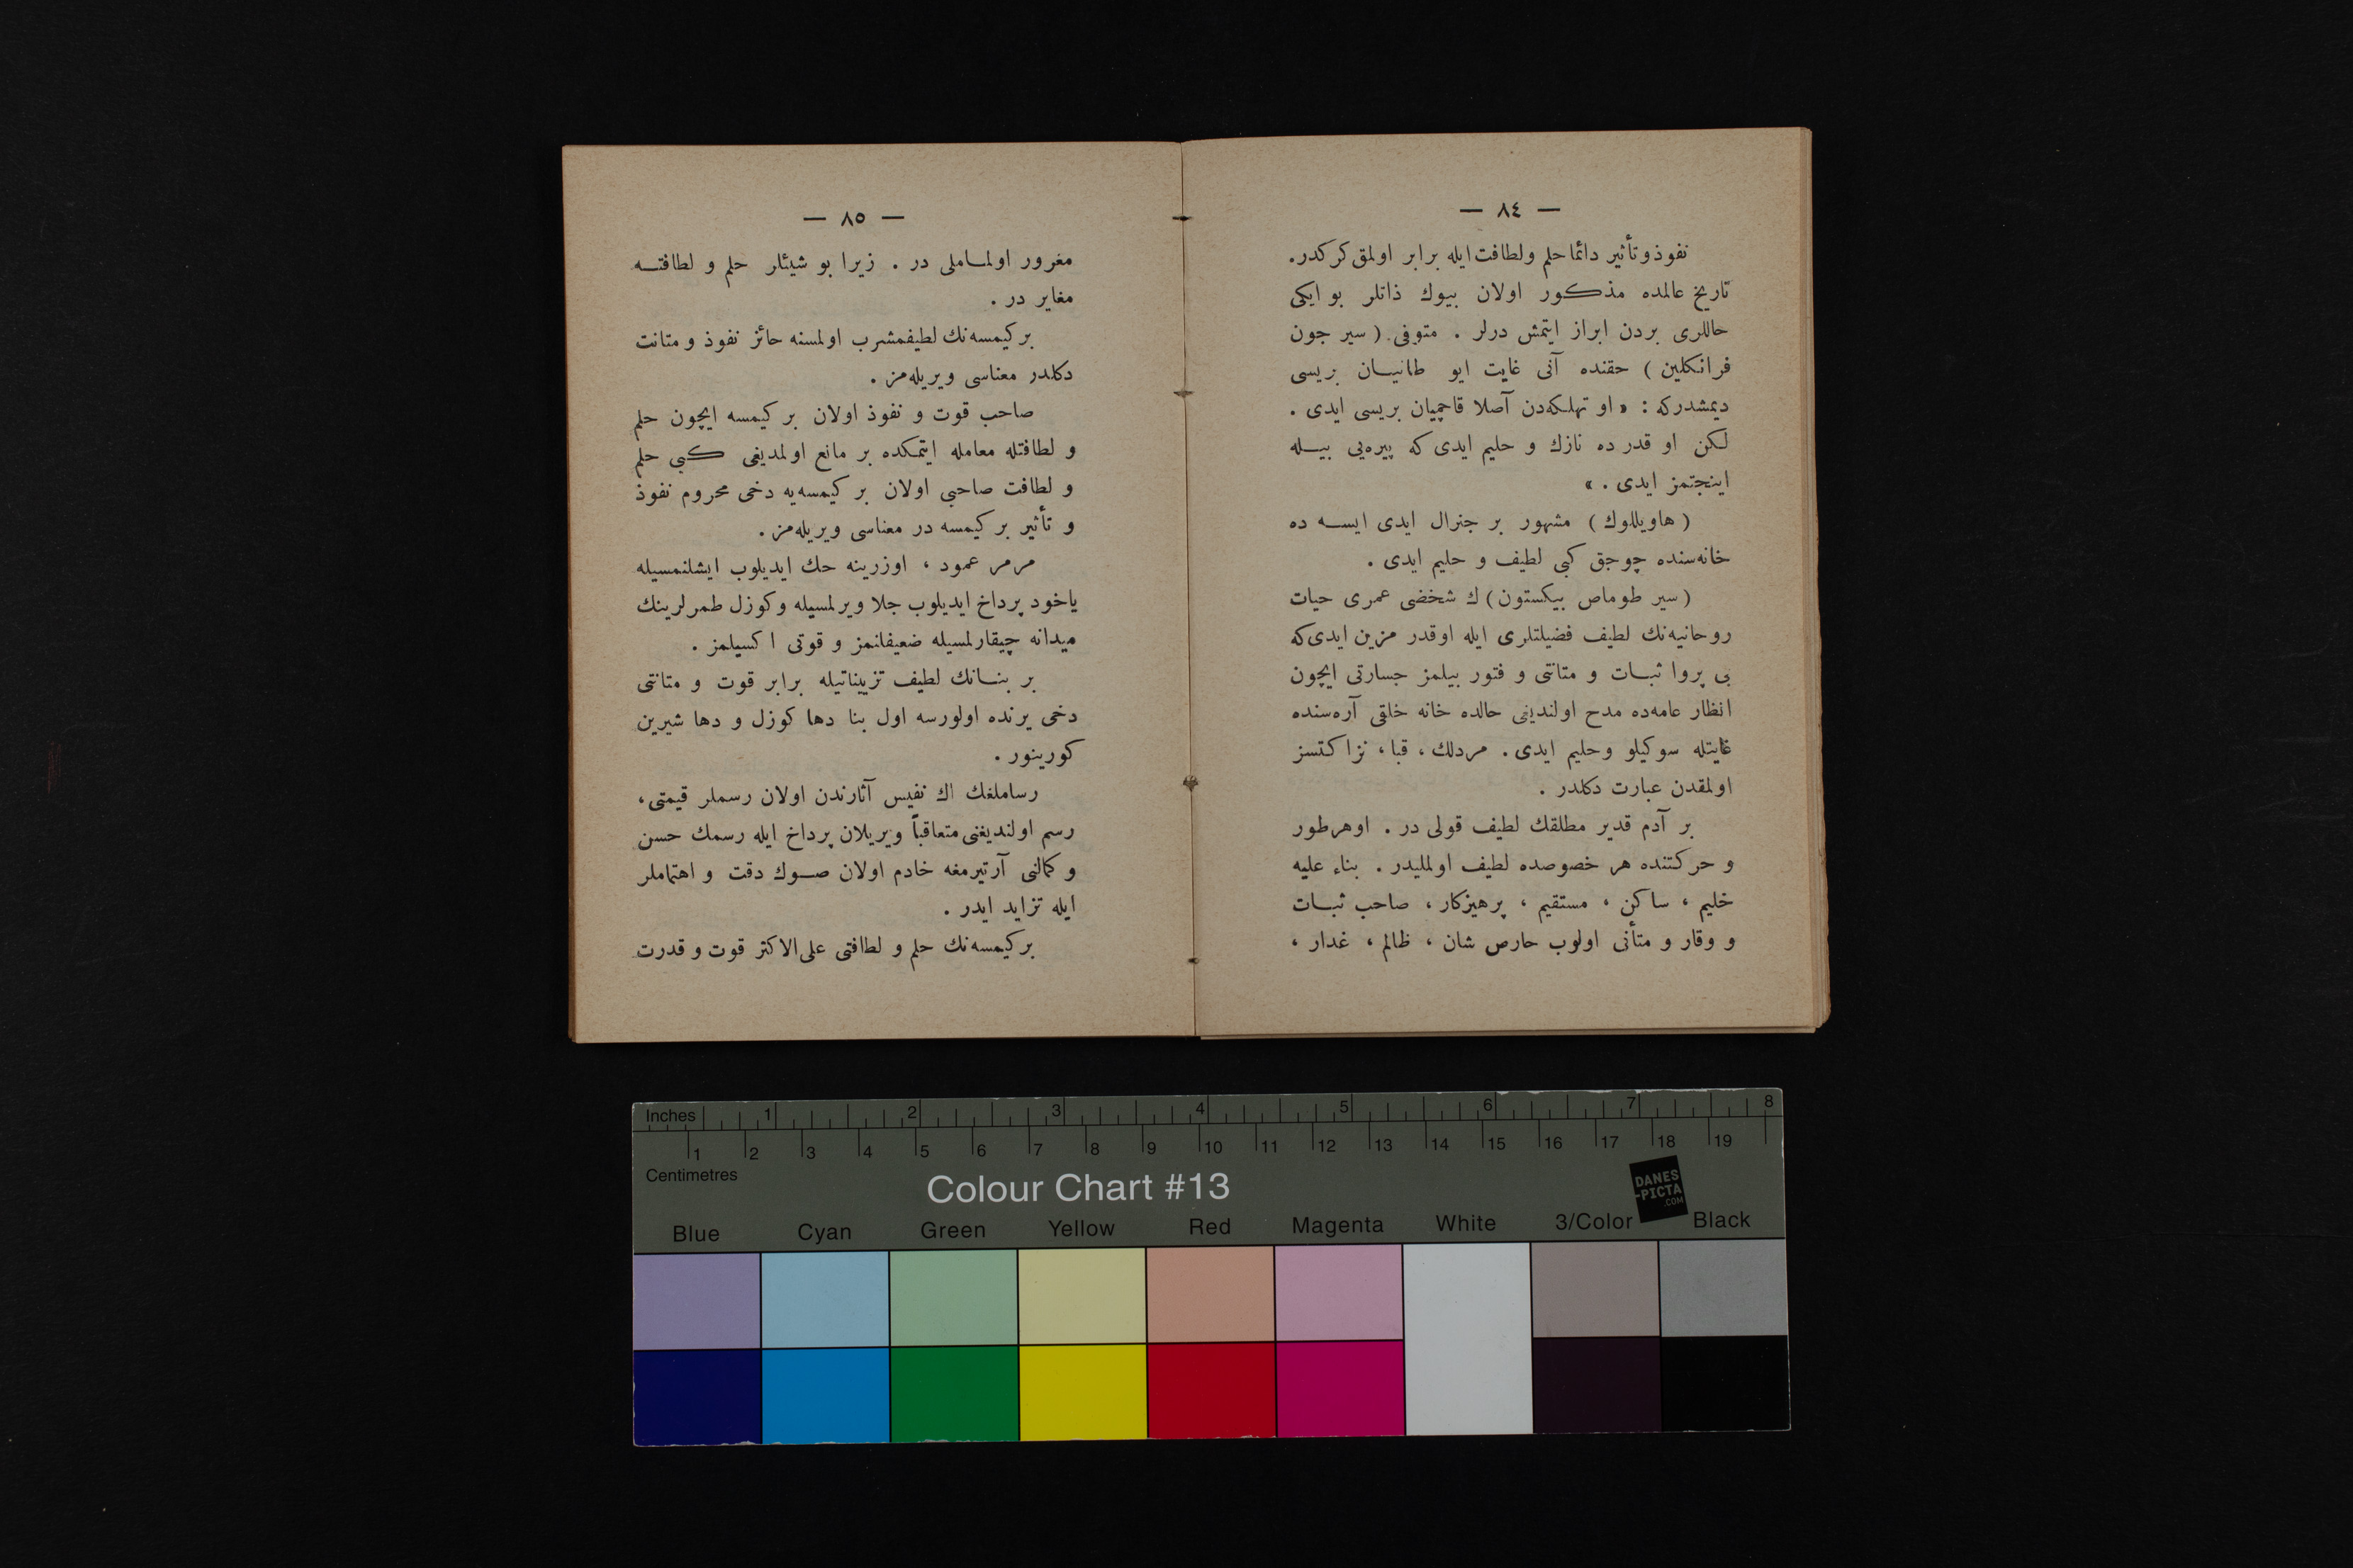 — ٨٤ —
نفوذ وتأثير دائما حلم ولطافت ايله برابر اولمق كركدر.
تاريخ عالمده مذكور اولان بيوك ذاتلر بو ايكى
حاللرى بردن ابراز ايتمش درلر . متوفى ( سير جون
فرانكلين ) حقنده آنى غايت ايو طانيان بريسى
ديمشدركه : « او تهلكه‌دن آصلا قاچميان بريسى ايدى .
لكن او قدر ده نازك و حليم ايدى كه پيره‌يى بيله
اينجتمز ايدى . »
( هاويللوك ) مشهور بر جنرال ايدى ايسه ده
خانه‌سنده چوجق كبى لطيف و حليم ايدى .
( سير طوماص بيكستون ) ك شخضى عمرى حيات
روحانيه‌نك لطيف فضيلتلرى ايله اوقدر مزين ايدى‌كه
بى پروا ثبات و متانتى و فتور بيلمز جسارتى ايچون
انظار عامه‌ده مدح اولنديغى حالده خانه خلقى آره‌سنده
غايتله سوكيلو وحليم ايدى . مردلك ، قبا ، نزاكتسز
اولمقدن عبارت دكلدر .
بر آدم قدير مطلقك لطيف قولى در . اوهرطور
و حركتنده هر خصوصده لطيف اولمليدر . بناء عليه
خليم ، ساكن ، مستقيم ، پرهيزكار ، صاحب ثبات
و وقار و متأنى اولوب حارص شان ، ظالم ، غدار ،
— ٨٥ —
مغرور اولماملى در . زيرا بو شيئلر حلم و لطافته
مغاير در .
بر كيمسه‌نك لطيفمشرب اولمسنه حائز نفوذ و متانت
دكلدر معناسى ويريله‌مز .
صاحب قوت و نفوذ اولان بر كيمسه ايچون حلم
و لطافتله معامله ايتمكده بر مانع اولمديغى كبى حلم
و لطافت صاحبى اولان بر كيمسه‌يه دخى محروم نفوذ
و تأثير بر كيمسه در معناسى ويريله‌مز .
مرمر عمود ، اوزرينه حك ايديلوب ايشلنمسيله
ياخود پرداخ ايديلوب جلا ويرلمسيله وكوزل طمرلرينك
ميدانه چيقارلمسيله ضعيفلنمز و قوتى اكسيلمز .
بر بنانك لطيف تزييناتيله برابر قوت و متانتى
دخى يرنده اولورسه اول بنا دها كوزل و دها شيرين
كورينور .
رساملغك اك نفيس آثارندن اولان رسملر قيمتى ،
رسم اولنديغنى متعاقباً ويريلان پرداخ ايله رسمك حسن
و كمالنى آرتيرمغه خادم اولان صوك دقت و اهتماملر
ايله تزايد ايدر .
بر كيمسه‌نك حلم و لطافتى على الاكثر قوت و قدرت
Inches 1 2 3 4 5 6 7 8
1 2 3 4 5 6 7 8 9 10 11 12 13 14 15 16 17 18 19
Centimetres
Colour Chart #13
DANES
-PICTA
.COM
Blue Cyan Green Yellow Red Magenta White 3/Color Black